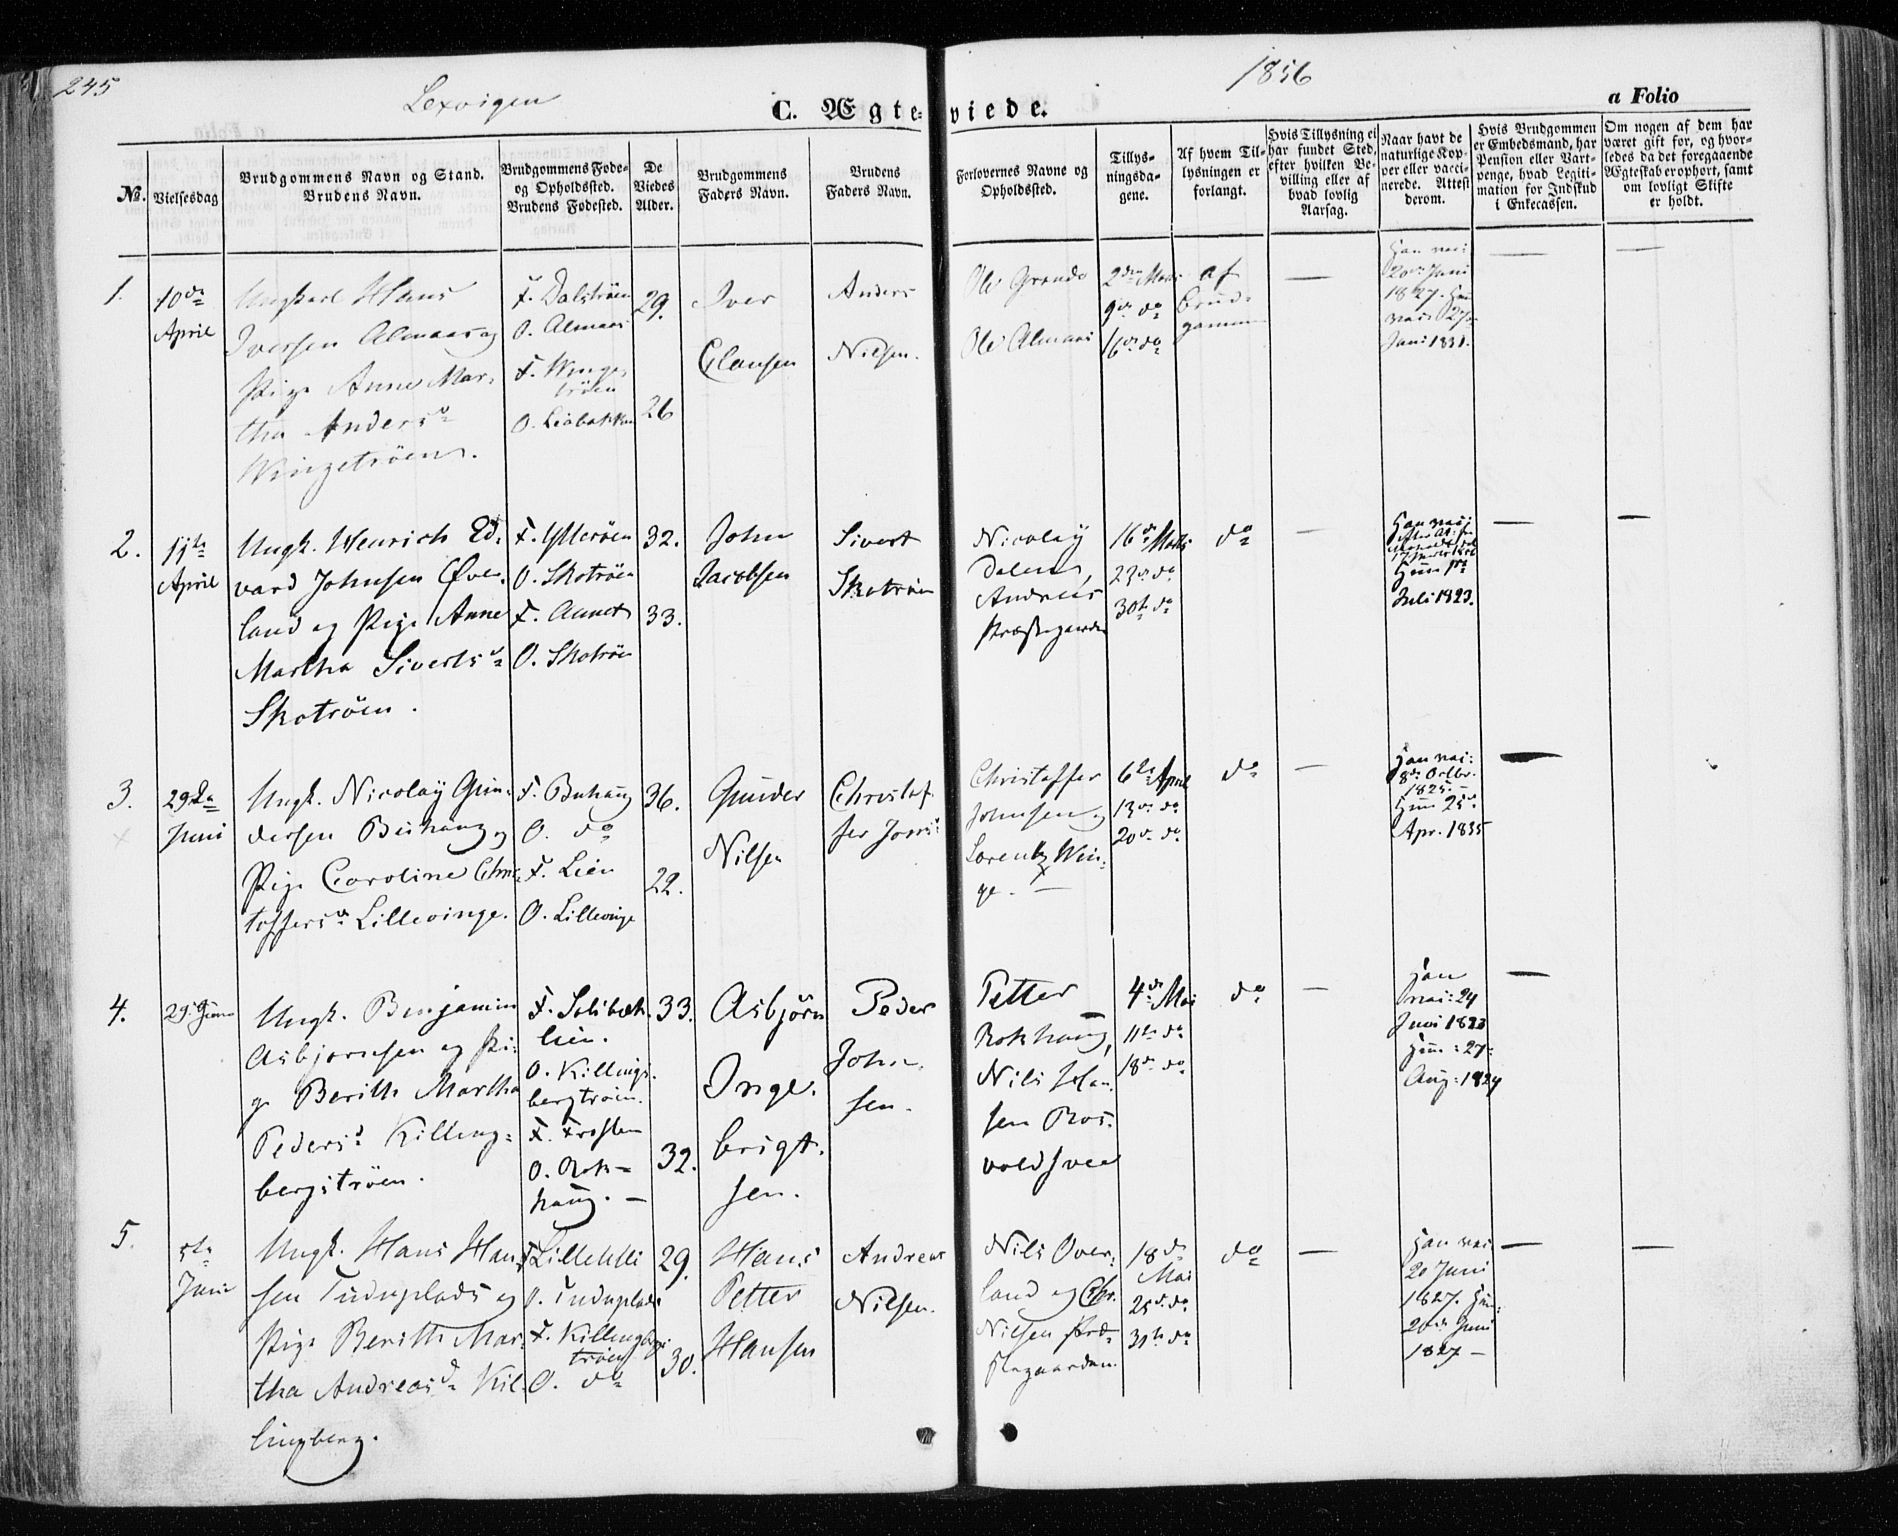 245
Lexvigen
1856
C. Ægteviede.
a Folio
No.
Vielsesdag
Brudgommens Navn og Stand.
Brudens Navn.
Brudgommens Føde-
og Opholdssted.
Brudens Fødested.
De
Viedes
Alder.
Brudgommens
Faders Navn.
Brudens
Faders Navn.
Forlovernes Navne og
Opholdssted.
Tillys-
ningsda-
gene.
Af hvem Til-
lysningen er
forlangt.
Hvis Tillysning ei
har fundet Sted,
efter hvilken Be-
villing eller af
hvad lovlig
Aarsag.
Naar havt de
naturlige Kop-
per eller vacci-
nerede. Attest
derom.
Hvis Brudgommen
er Embedsmand, har
Pension eller Vart-
penge, hvad Legiti-
mation for Indskud
i Enkecassen.
Om nogen af dem har
været gift før, og hvor-
ledes da det foregaaende
Ægteskab er ophørt, samt
om lovligt Skifte
er holdt.
1.
10de
April
Ungkarl Hans
Iversen Almaas og
Pige Anne Mar-
tha Andersd
Wingetrøen.
F. Dalstrøen
O. Almaas
F. Winge-
trøen
O. Leabakken
29.
26
Iver
Clausen
Anders
Nilsen.
Ole Grande
Ole Almaas
2den Marts
9de do
16de do
af
Brud-
gommen
—
Han vac:
20de Juni
1827. Hun
vac: 27de
Juni 1831.
—
—
2.
11te
April
Ungk. Henrich Ed-
vard Johnsen Øver-
land og Pige Anne
Martha Sivertsd
Skotrøen.
F. Ytterøen
O. Skotrøen
F. Aunet
O. Skotrøen
32.
33.
John
Jacobsen
Sivert
Skotrøen
Nicolay
Dalen,
Andreas
Præstegaarden
16de Marts
23de do
30te do
do
—
Han vac:
Hun
Juli 1823.
—
—
3.
29de
Juni
Ungk. Nicolay Gun-
dersen Buhaug og
Pige Caroline Chris-
toffersd Lillevinge.
F. Buhaug
O. do
F. Lien
O. Lillevinge
36.
22.
Gunder
Nilsen
Christof-
fer Johns:
Christoffer
Johnsen og
Lorentz Win-
ge. —
6te April
13de do
20de do
do
—
Han vac:
8de Octbr.
1825. —
Hun 25de
Apr. 1835
—
4.
29. Juni
Ungk. Benjamin
Asbjørnsen og Pi-
ge Berith Martha
Pedersd Killing-
bergstrøen.
F. Solibak-
lien.
O. Killings-
bergtrøen.
F. Frosten
O. Rok-
haug. —
33.
32.
Asbjørn
Inge-
brigt-
sen.
Peder
John-
sen.
Petter
Rokhaug,
Nils Han-
sen Ros-
voldsvee
4de Mai
11te do
18de do
do
—
Han
vac: 24
Juni 1823
Hun: 27de
Aug: 1824
—
5.
5te
Juni
Ungk. Hans Han-
sen Tuduplads og
Pige Berith Mar-
tha Andreasd Kil-
lingberg.
F. Lillehli
O. Tuduplads
F. Killingbergs-
trøen
O. do
29.
30.
Hans
Petter
Hansen
Andreas
Nilsen.
Nils Over-
land og Chr.
Nilsen Præ-
stegaarden.
18de
Mai
25de do
31te do
do
—
Han vac:
20 Juni
1827. Hun:
20de Juni
1827 —
—
—